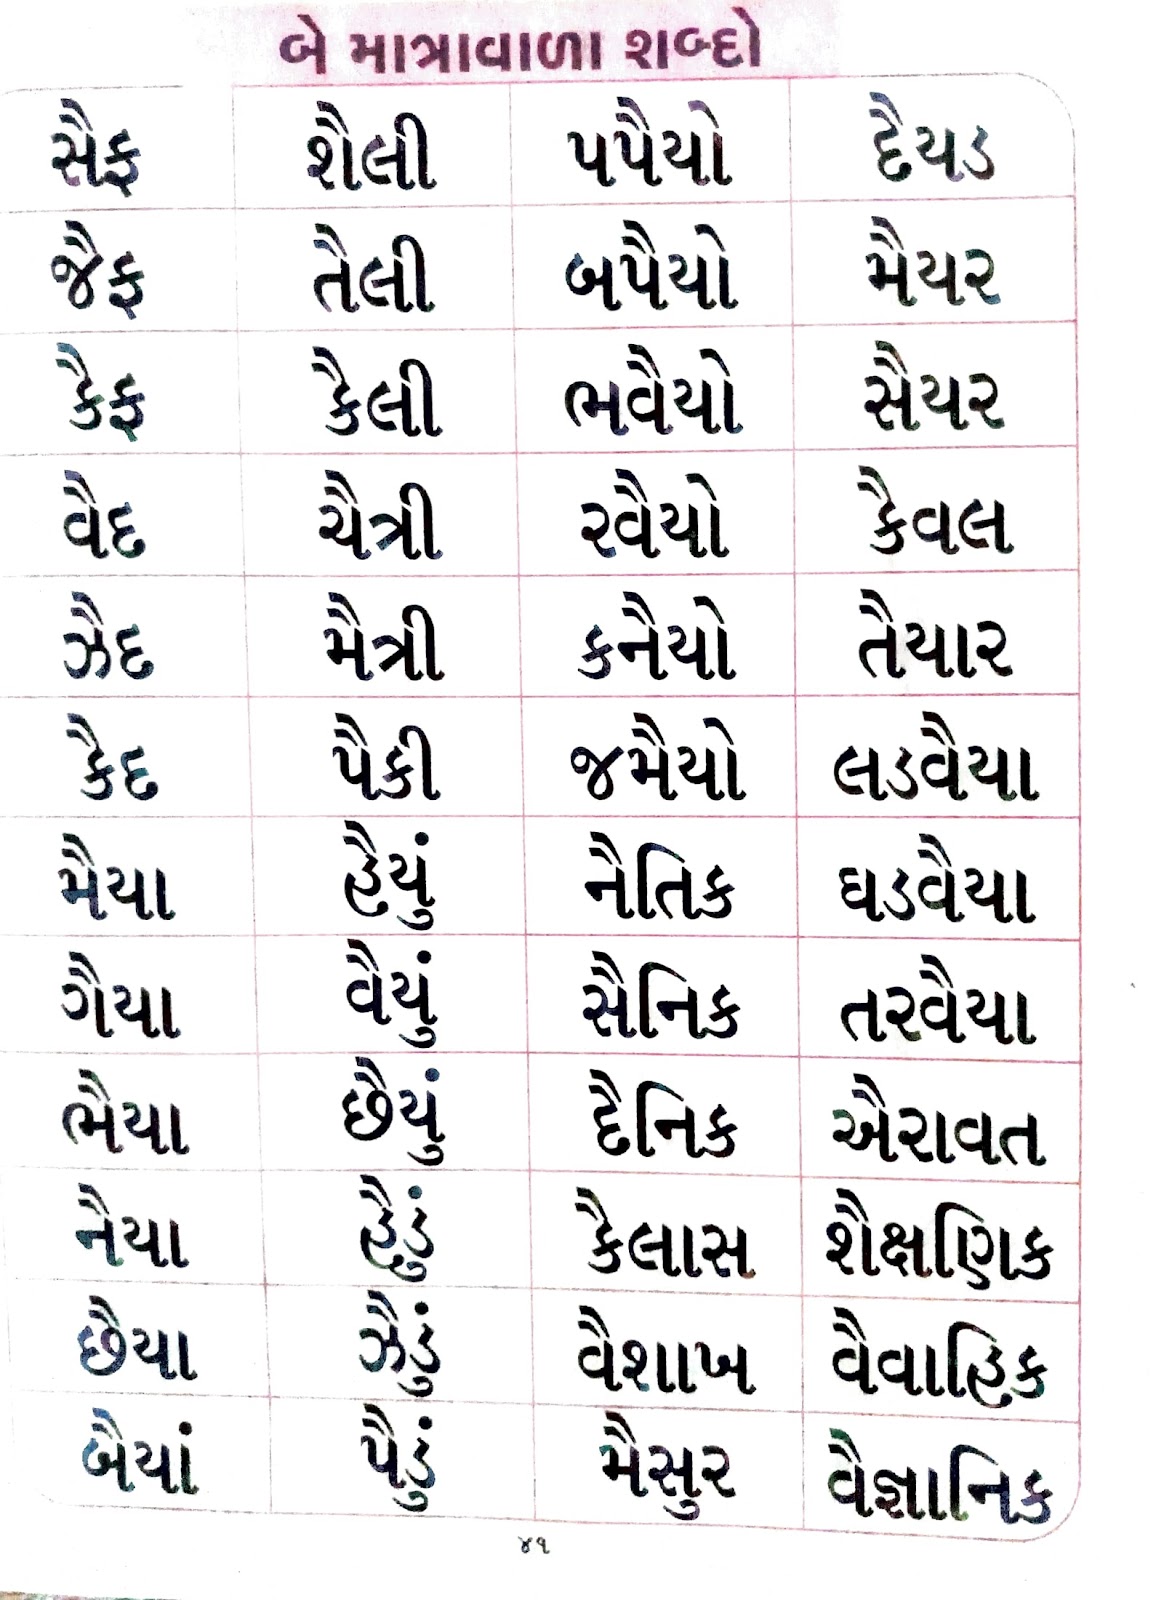 બે માત્રાવાળા શબ્દો
સૈફ શૈલી પપૈયો દૈયડ
જૈફ તૈલી બપૈયો મૈયર
કૈફ કૈલી ભવૈયો સૈયર
વૈદ ચૈત્રી રવૈયો કૈવલ
ઝૈદ મૈત્રી કનૈયો તૈયાર
કૈદ પૈકી જમૈયો લડવૈયા
મૈયા હૈયું નૈતિક ઘડવૈયા
ગૈયા વૈયું સૈનિક તરવૈયા
ભૈયા છૈયું દૈનિક ઐરાવત
નૈયા હૈડું કૈલાસ શૈક્ષણિક
છૈયા ઝૈડું વૈશાખ વૈવાહિક
બૈયાં પૈડું મૈસુર વૈજ્ઞાનિક
૪૧